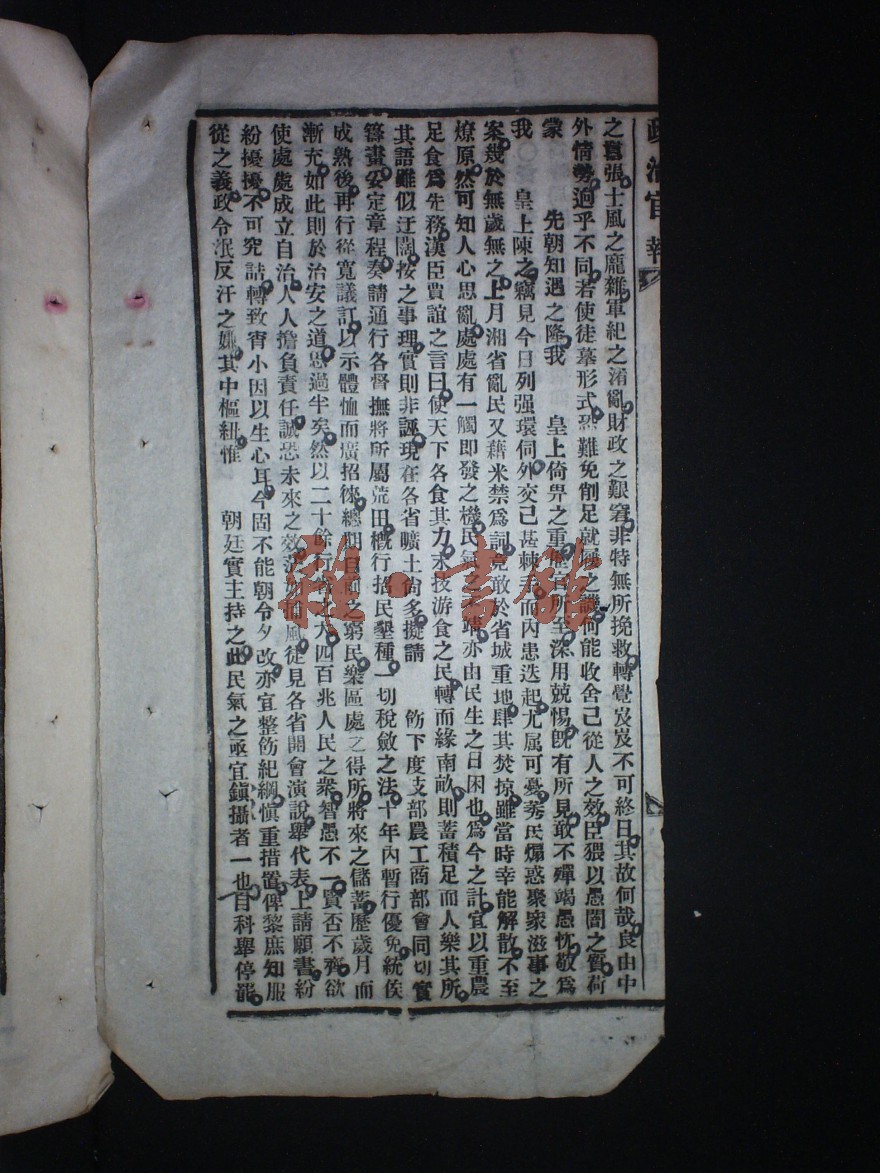 政治官報
之囂張士風之龐雜軍紀之淆亂財政之艱窘非特無所挽救轉覺岌岌不可終日其故何哉良由中
外情勢迥乎不同若使徒摹形式恐難免削足就履之譏何能收舍己從人之效臣猥以愚闇之質荷
蒙　先朝知遇之隆我　皇上倚畀之重 所至深用兢惕旣有所見敢不殫竭愚忱敬爲
我　皇上陳之竊見今日列强環伺外交己甚棘手而內患迭起尤属可憂莠民煽惑聚衆滋事之
案幾於無歲無之上月湘省亂民又藉米禁爲詞竟敢於省城重地肆其焚掠雖當時幸能解散不至
燎原然可知人心思亂處處有一觸即發之機民氣之不靖亦由民生之日困也爲今之計宜以重農
足食爲先務漢臣賈誼之言曰使天下各食其力末技游食之民轉而緣南畝則蓄積足而人樂其所
其語雖似迂闊按之事理實則非誣現在各省曠土尙多擬請　飭下度支部農工商部會同切實
籌畫妥定章程奏請通行各督撫將所屬荒田槪行招民墾種一切稅斂之法十年內暫行優免統俟
成熟後再行從寬議訂以示體恤而廣招徠總期目前之窮民樂區處之得所將來之儲蓄歷歲月而
漸充如此則於治安之道思過半矣然以二十餘行省之大四百兆人民之衆智愚不一賢否不齊欲
使處處成立自治人人擔負責任誠恐未來之效 捕風徒見各省開會演說舉代表上請願書紛
紛擾擾不可究詰轉致宵小因以生心耳今固不能朝令夕改亦宜整飭紀綱愼重措置俾黎庶知服
從之義政令泯反汗之嫌其中樞紐惟　朝廷實主持之此民氣之亟宜鎭攝者一也自科舉停罷
雜·書館